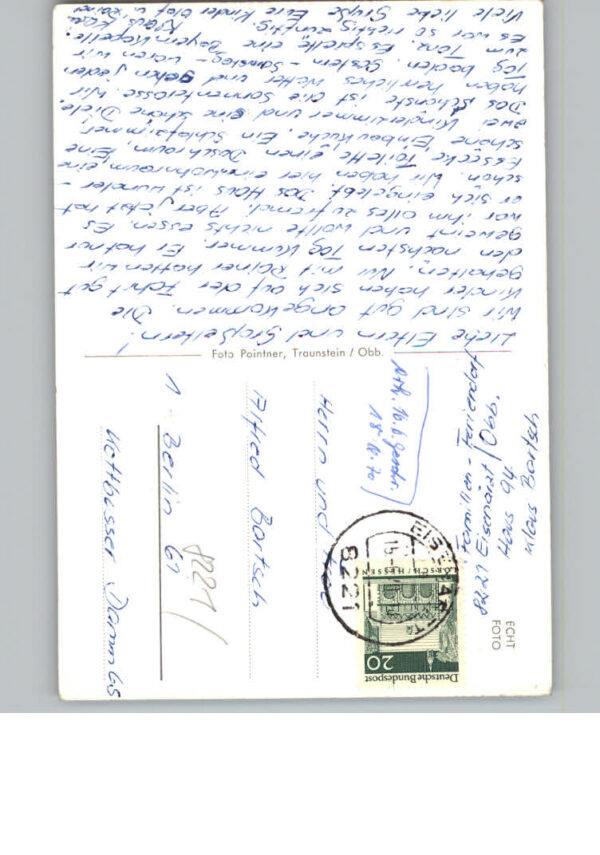 Liebe Eltern und Großeltern!
Wir sind gut angekommen. Die
Kinder haben sich auf der Fahrt gut
gehalten. Nur mit Rainer hatten wir
den nächsten Tag Kummer. Er hat nur
geweint und wollte nichts essen. Es
war ihm alles zu fremd. Aber jetzt hat
er sich eingelebt. Das Haus ist wunder-
schön. Wir haben hier einen Wohnraum, eine
Essecke Toilette, einen Duschraum. Eine
schöne Einbauküche. Ein Schlafzimmer,
zwei Kinderzimmer und eine schöne Diele.
Das schönste ist die Sonnenterasse. Wir
haben herrliches Wetter und gehen jeden
Tag baden. Gestern - Samstag - waren wir
zum Tanz. Es spielte eine Bayernkapelle.
Es war so richtig zünftig.
Viele liebe Grüße Eure Kinder Olaf u. Rainer
Klaus,
Foto Pointner, Traunstein / Obb.
Familien-Feriendorf
8221 Eisenärzt / Obb.
Haus 94
Klaus Bartsch
18.6.70
Herrn und Frau
Alfred Bartsch
1 Berlin 61
Methfesser Damm 65
8221/
ECHT
FOTO
Deutsche Bundespost
20
LORSCH / HESSEN
8221